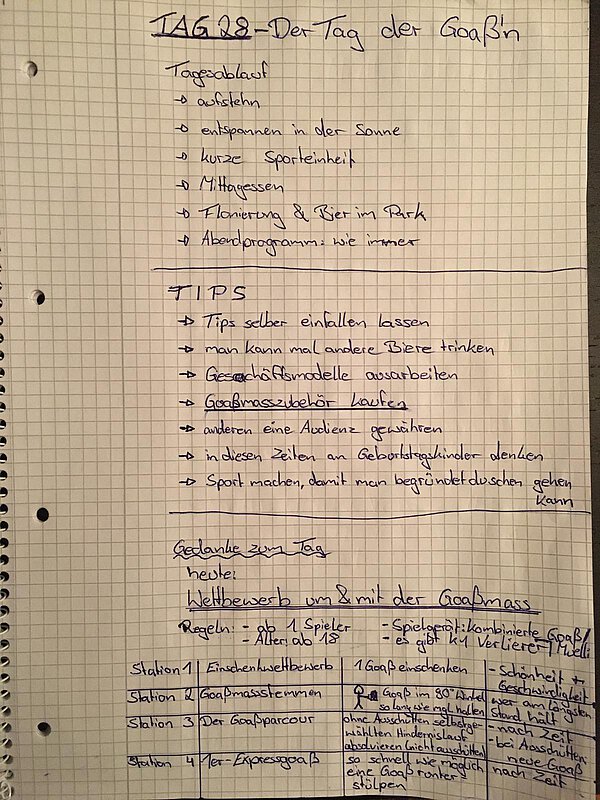 TAG 28 - Der Tag der Goaß'n
Tagesablauf
→ aufstehn
→ entspannen in der Sonne
→ kurze Sporteinheit
→ Mittagessen
→ Flanierung & Bier im Park
→ Abendprogramm: wie immer
TIPS
→ Tips selber einfallen lassen
→ man kann mal andere Biere trinken
→ Geschäftsmodelle ausarbeiten
→ Goaßmasszubehör kaufen
→ anderen eine Audienz gewähren
→ in diesen Zeiten an Geburtstagskinder denken
→ Sport machen, damit man begründet duschen gehen
kann
Gedanke zum Tag
heute:
Wettbewerb um & mit der Goaßmass
Regeln: - ab 1 Spieler
- Alter: ab 18
- Spielgerät: kombinierte Goaß/
- es gibt k1 Verlierer Mwelli
Station 1 Einschenkwettbewerb 1 Goaß einschenken - Schönheit +
Geschwindigkeit
Station 2 Goaßmassstemmen Goaß im 90° Winkel
so lang wie mgl. halten
wer am längsten
Stand hält
Station 3 Der Goaßparcour ohne Ausschütten selbstge-
wählten Hindernislauf
absolvieren (nicht ausschütten)
- nach Zeit
- bei Ausschütten
neue Goaß
Station 4 1er-Expressgoaß so schnell wie möglich
eine Goaß runter
stölpen
nach Zeit